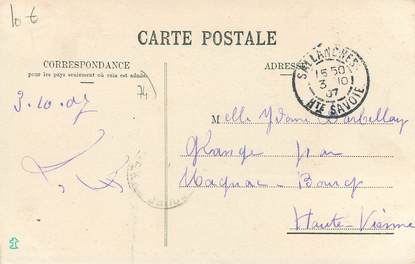 10 €
CARTE POSTALE
CORRESPONDANCE
pour les pays seulement où cela est admis
ADRESSE
SALLANCHES
15 50
3 10
07
HTE SAVOIE
3.10.07
74
Melle Yvonne Barbellay
Grange
Magnac-Bourg
Haute-Vienne